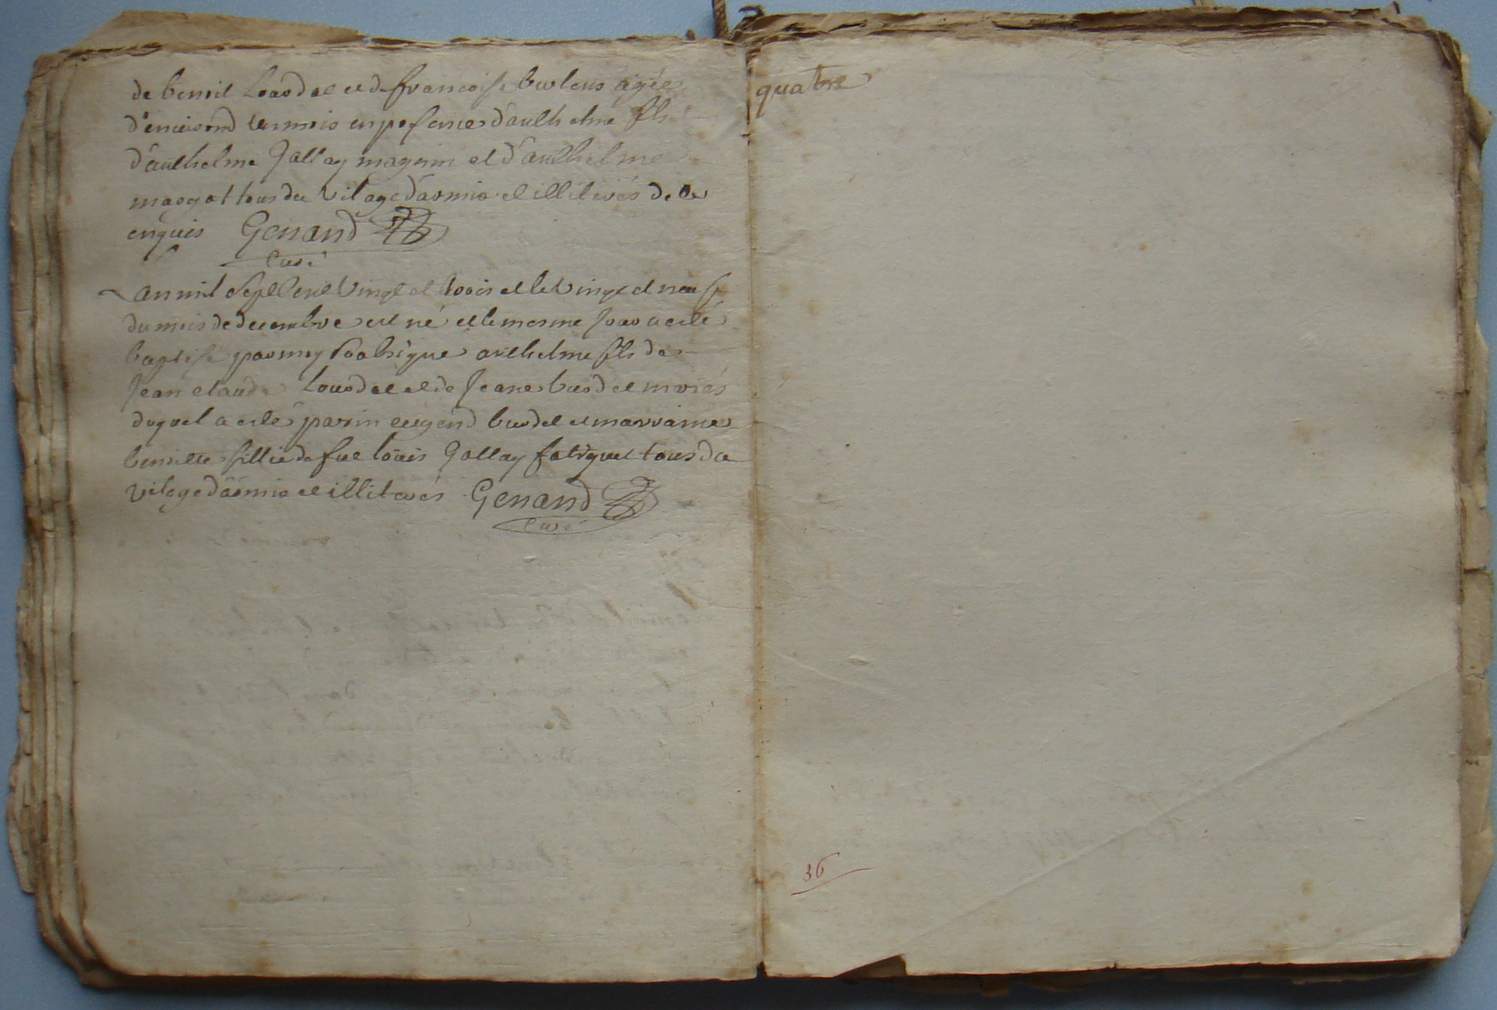 de benoit Lourdel et de francoise burlens agée
d'environd un mois en presence d'anthelme fils
d'anthelme Jallay magnin et d'anthelme
margot tous du vilage d'asmio et illiterés de ce
enquis Genand
curé
an mil sept cent vingt et trois et le vingt et neuf
du mois de decembre est né et le mesme jour a esté
baptisé par moy soubsigné anthelme fils de
Jean claude Lourdel et de Jeane burdel mariés
duquel a esté parin eugend burdel et marraine
benoitte fillie de fue loüis Jallay fatiguet tous du
vilage d'asmio et illiterés Genand
curé
quatre
36